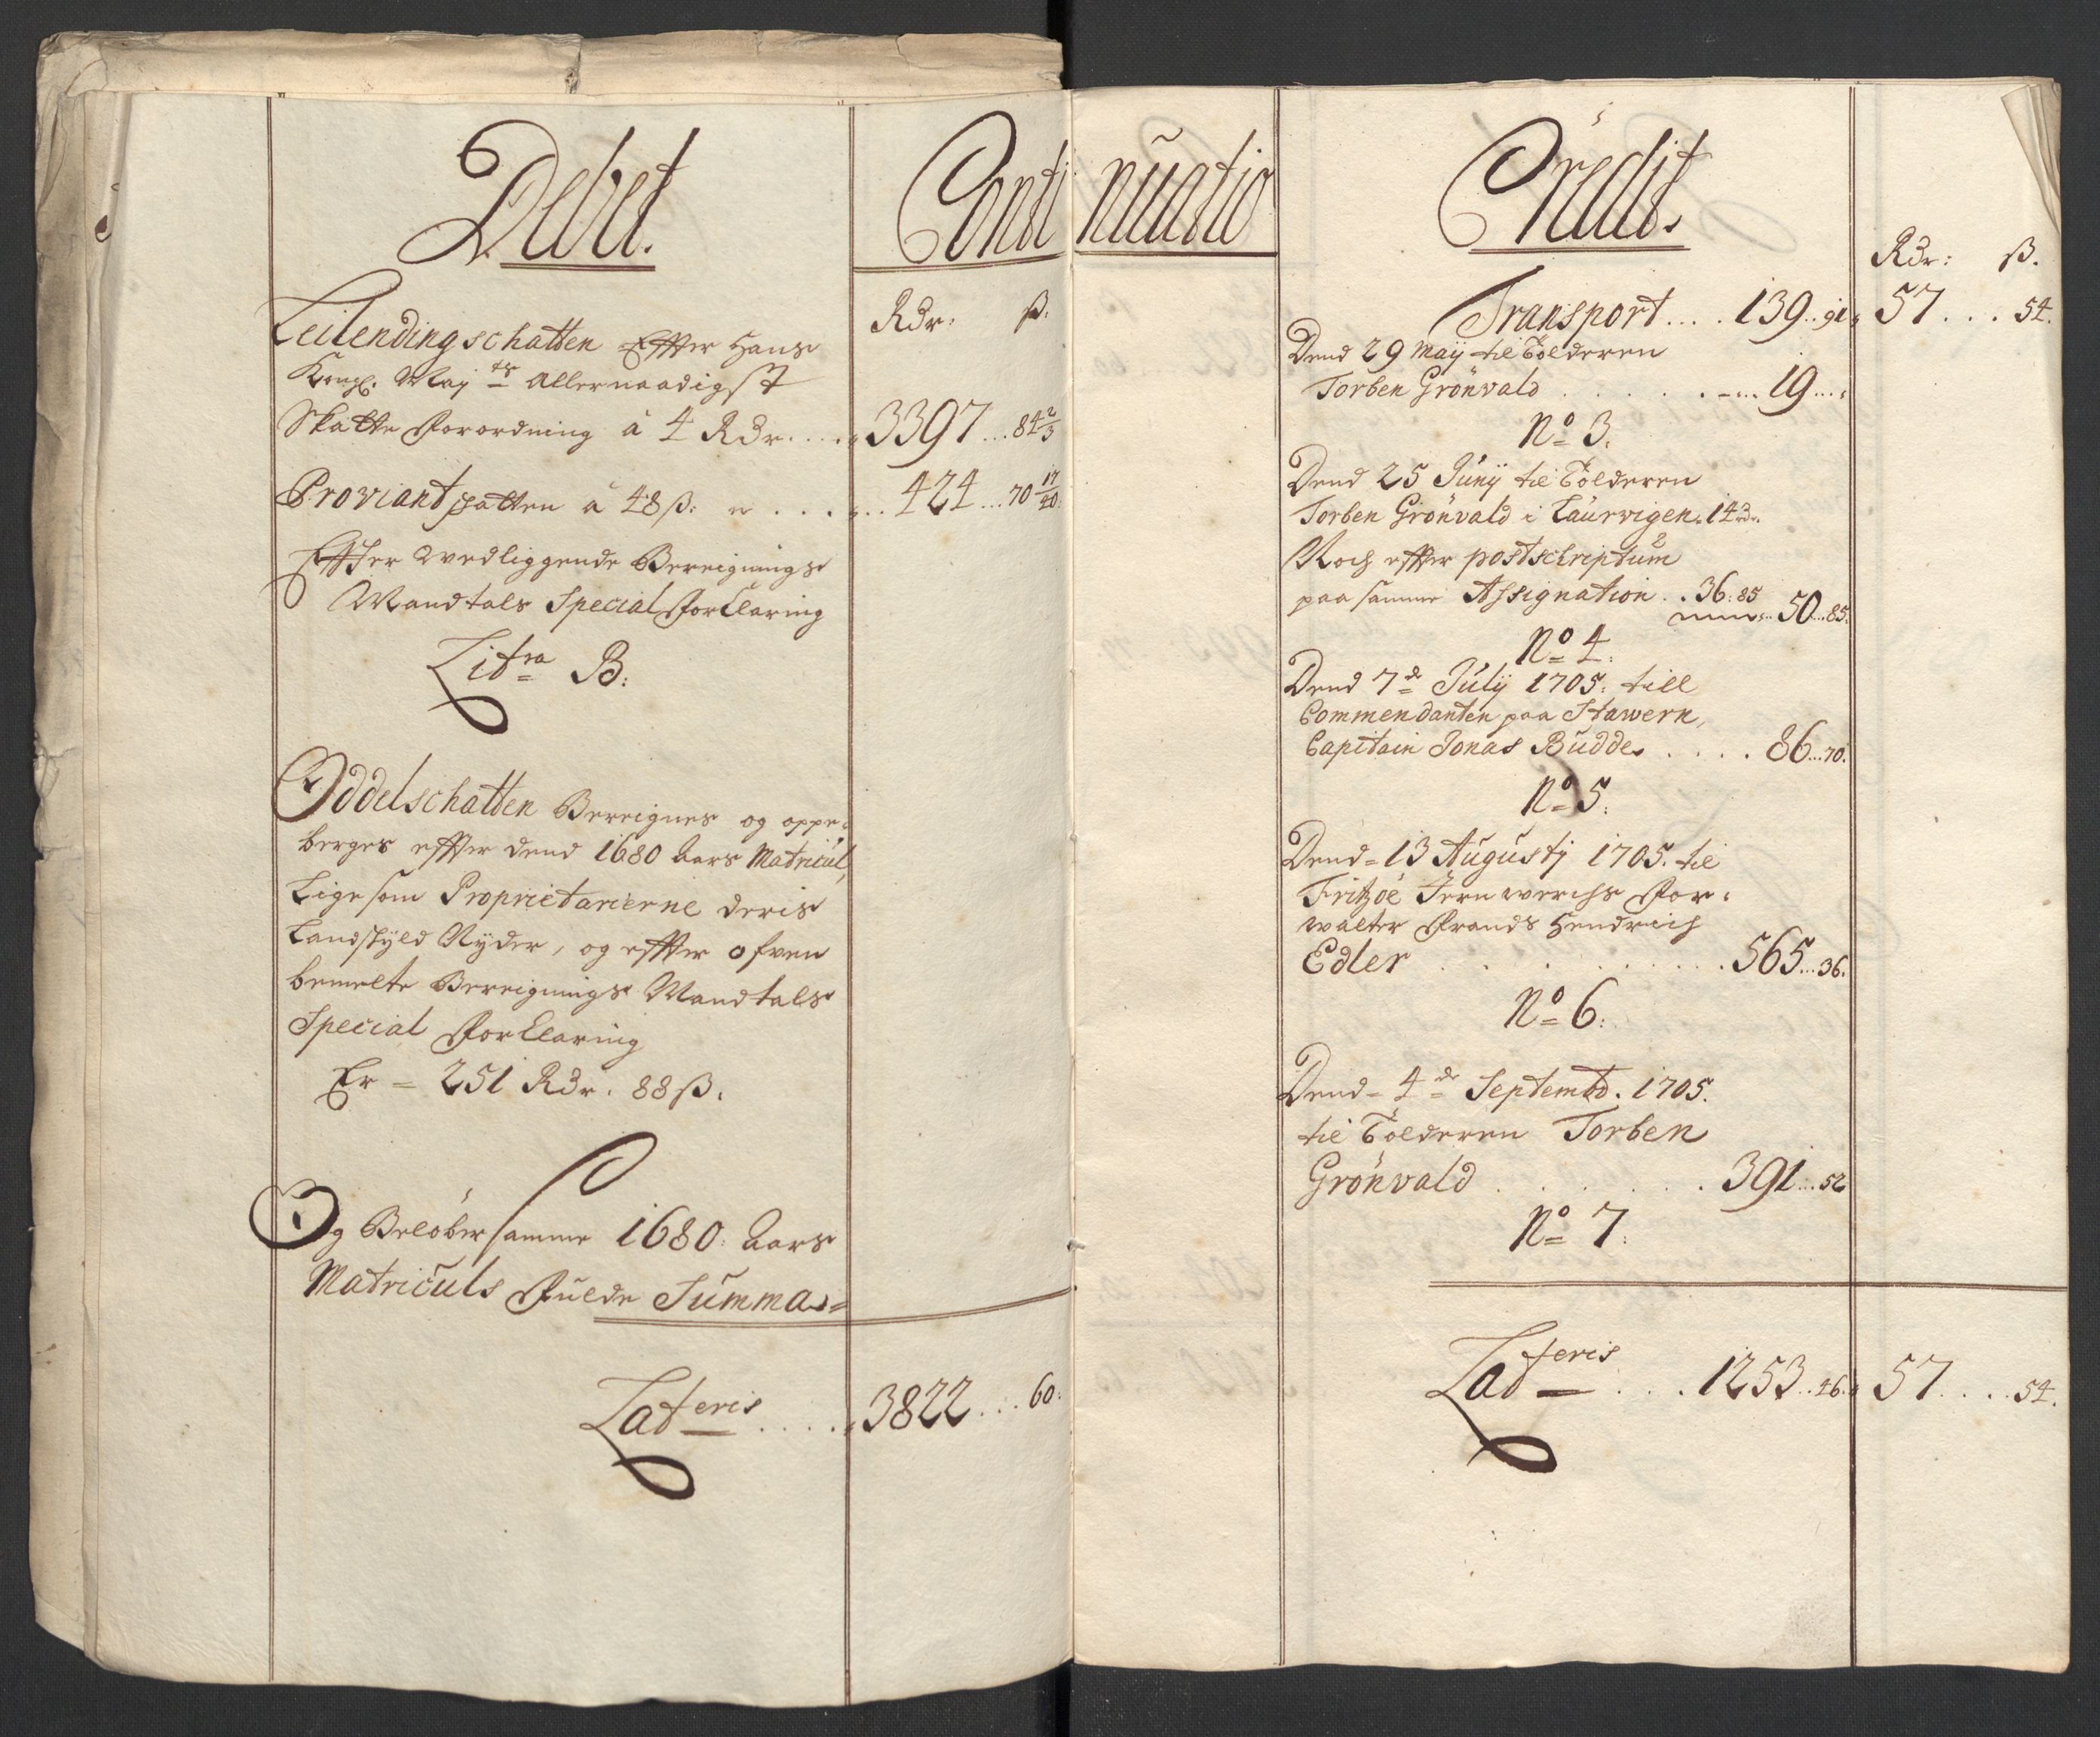 Debet.
Conti nuatio
Credit.
Leilendingschatten Effter Hans
Kongl. Maj.ts Allernaadigst
Skatte Forordning à 4 Rdr....
Rdr. ß.
3397...84 2/3
Proviantschatten à 48 ß: ...
424...70 17/20
Effter Wedliggende Bereignings
Mandtals Special Forklaring
Litra B:
Oddelschatten Bereignes og oppe-
berges effter dend 1680 Aars Matricul,
Lige som Proprietarierne deris
Landskyld Nyder, og effter ofven
bemelte Bereignings Mandtals
Special Forklaring
Er = 251 Rdr. 88 ß.
Og Beløber samme 1680. Aars
Matriculs Fulde Summa=
Lateris.....3822...60.
Rdr: ß.
Transport....139..91. 57...54.
Dend 29 Maij til Tolderen
Torben Grönvald ......19...
No 3.
Dend 25 Junij til Tolderen
Torben Grönvald i Laurvigen. 14 rdr.
Noch effter postschriptum
paa samme Assignation..36:85
50...85.
No 4.
Dend 7de Julij 1705. till
Commendanten paa Stawern,
Capitain Jonas Budde.....86...70.
No 5.
Dend=13 Augustj 1705. til
Fritzöe Jernwerchs For-
walter Frands Hendrich
Edler.......565...36.
No 6.
Dend=4de Septembr. 1705.
til Tolderen Torben
Grönvald.......391...52
No 7.
Lateris...1253..46. 57....54.